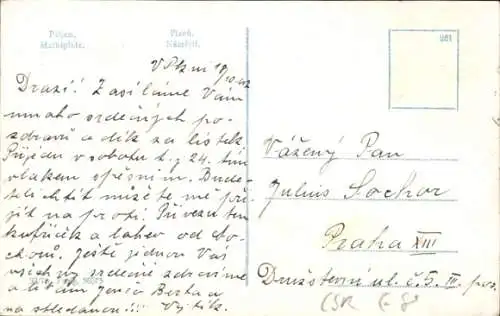 Pilsen.
Marktplatz.
Plzeň.
Náměstí.
261
V Plzni 19/10 42
Drazí! Zasíláme Vám
mnoho srdečných po-
zdravů a dík za lístek.
Přijedu v sobotu t.j. 24. tím
vlakem spěšným. Bude-
te-li chtít můžete mě při-
jít na proti. Přivezu ten
kufříček a lahev od
Ještě jednou Vás
všichny srdečně zdravíme
a líbám Jenča Berta a
na shledanou!!! Vojtík.
Vážený Pan
Julius Sochor
Praha XIII
Družstevní ul. č. 5. III. pos.
ČSR